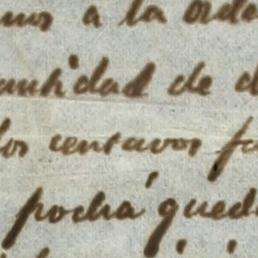 a la orde
antidad de d
los centavos fa
pocha qued